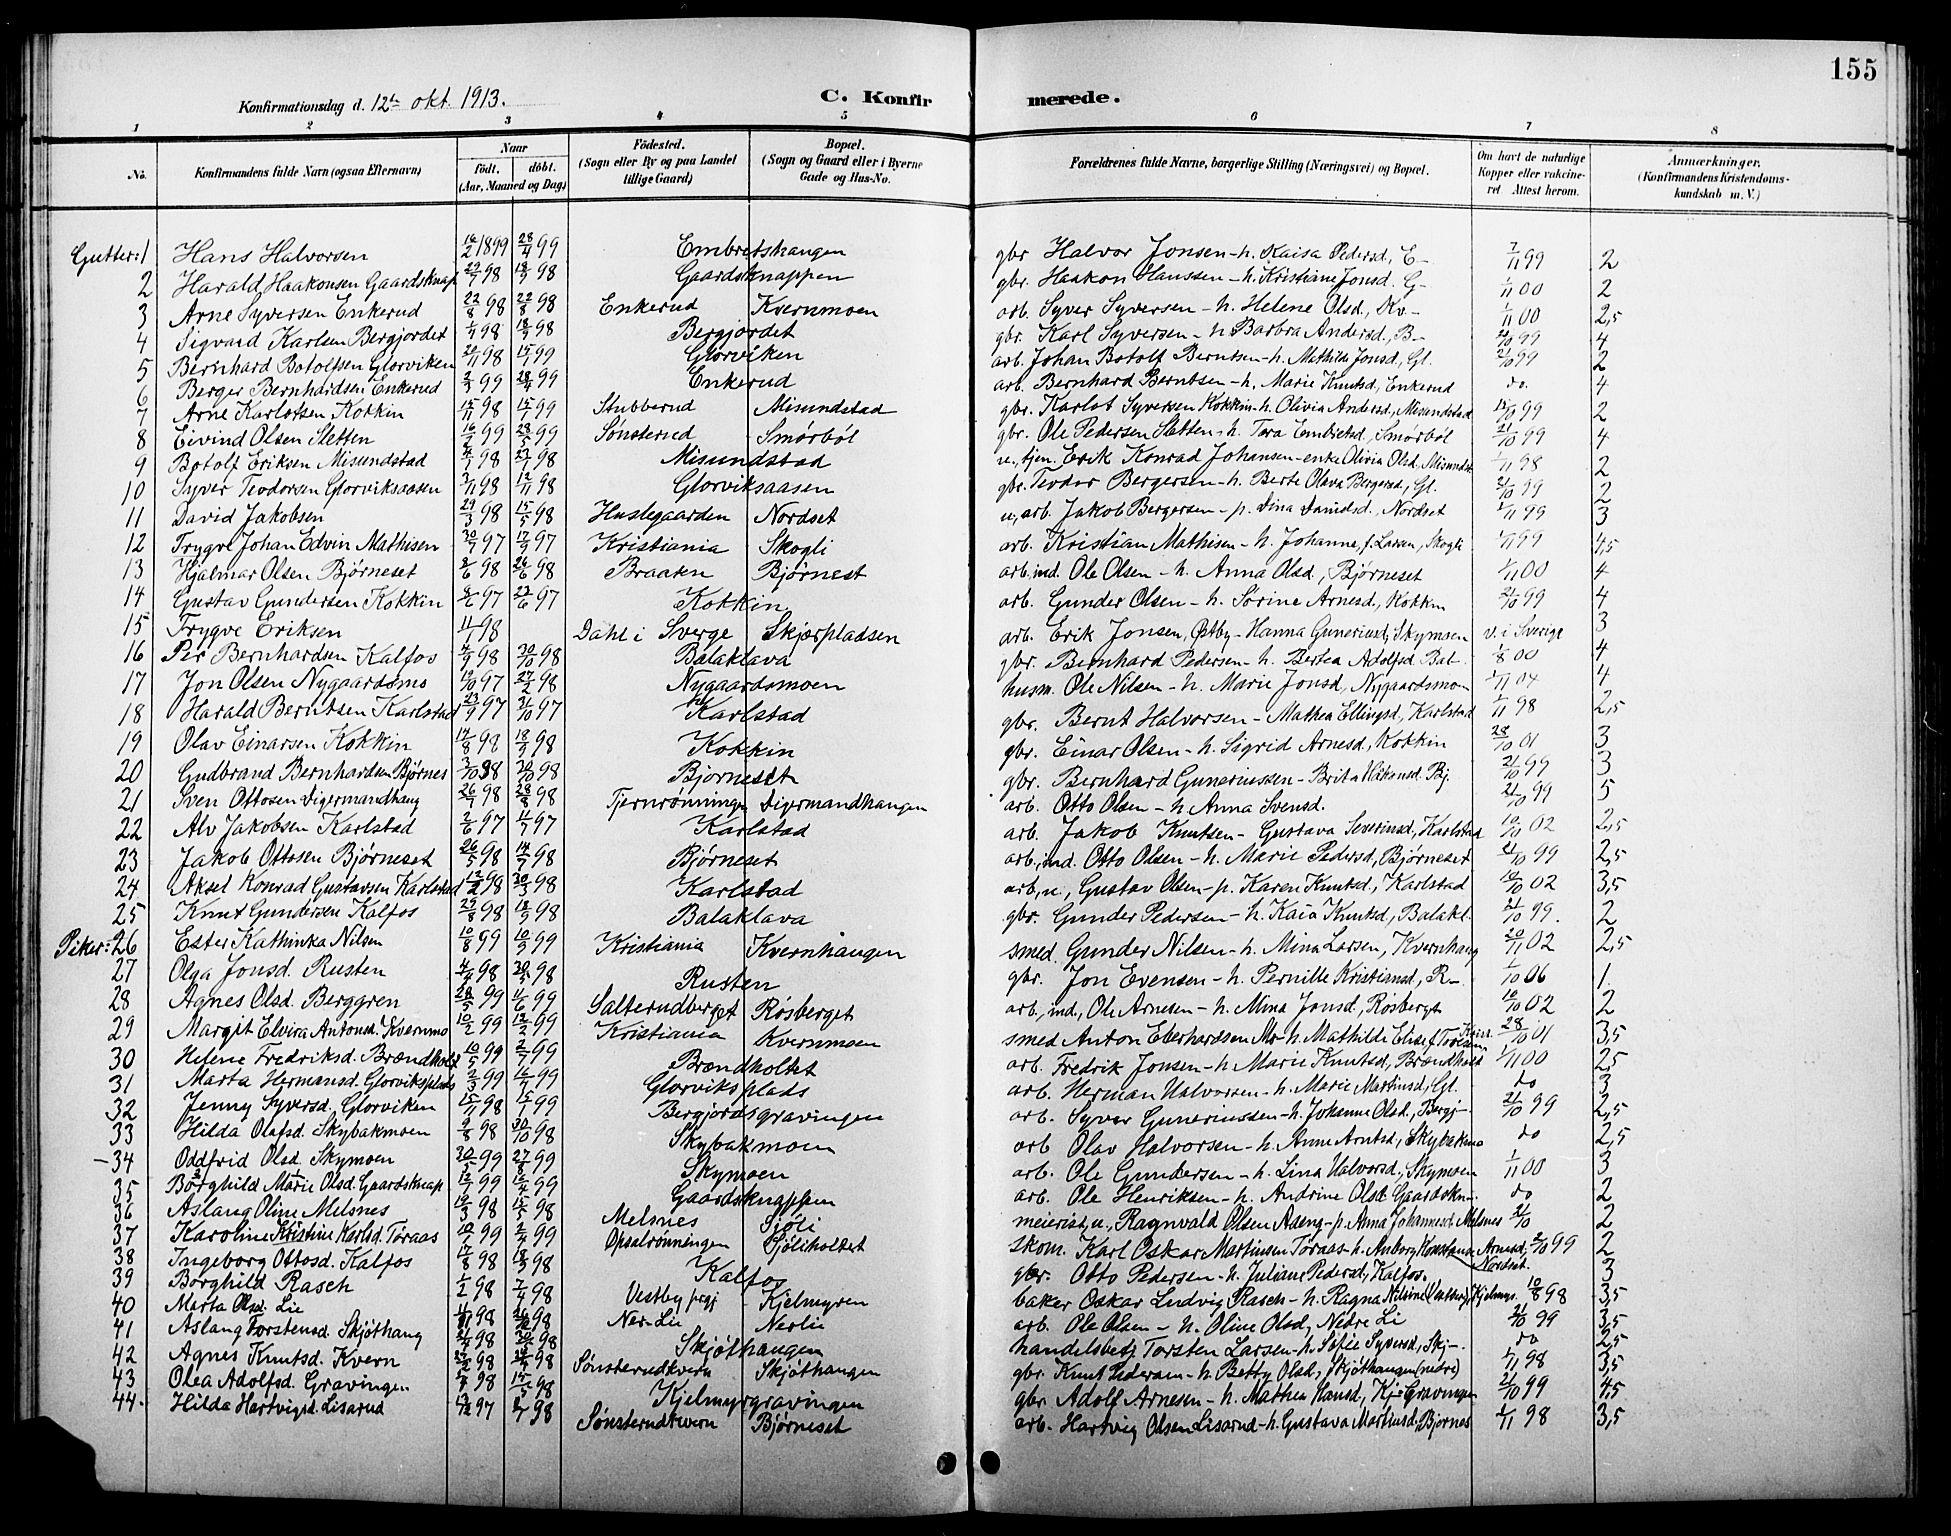 155
Konfirmationsdag d. 12te okt. 1913. C. Konfirmerede.
1 2 3 4 5 6 7 8
No. Konfirmandens fulde Navn (ogsaa Efternavn) Naar født. døbt. (Aar, Maaned og Dag) Fødested. (Sogn eller By og paa Landet tillige Gaard) Bopæl. (Sogn og Gaard eller i Byerne Gade og Hus-No. Forældrenes fulde Navne, borgerlige Stilling (Næringsvei) og Bopæl. Om havt de naturlige Kopper eller vakcineret Attest herom. Anmærkninger. (Konfirmandens Kristendomskundskab m. V.)
Gutter: 1 Hans Halvorsen 16/2 1899 28/4 99 Embretshaugen gbr. Halvor Jonsen - h. Kaisa Pedersd., E- 7/11 99 2
2 Harald Haakonsen Gaardsknap 98 18/9 98 Gaardsknappen gbr. Haakon Hanssen - h. Kristiane Jonsd. G- 1/11 00 2
3 Arne Syversen Enkerud 98 98 Enkerud Kvernmoen arb. Syver Syversen - h. Helene Olsd., Kv- 1/11 00 2,5
4 Sigvard Karlsen Bergjordet 98 18/9 98 Bergjordet gbr. Karl Syversen - h. Barbra Andersd., B- 21/10 99 4
5 Bernhard Botolfsen Glorviken 20/11 98 15/1 99 Glorviken arb. Johan Botolf Berntsen - h. Mathilde Jonsd., Gl. 21/10 99 2
6 Berger Bernhardsen Enkerud 99 28/4 99 Enkerud arb. Bernhard Berntsen - h. Marie Knutsd., Enkerud do. 4
7 Arne Karlotsen Kokkin 15/11 98 15/1 99 Stubberud Misundstad gbr. Karlot Syversen Kokkin - h. Olivia Andersd., Misundstad 99 2
8 Eivind Olsen Sletten 16/2 99 28/5 99 Sønsterud Smørbøl gbr. Ole Pedersen Sletten - h. Tora Embretsd., Smørbøl 21/10 99 4
9 Botolf Eriksen Misundstad 98 98 Misundstad u., tjen. Erik Konrad Johansen - enke Olivia Olsd., Misundst. 1/11 98 2
10 Syver Teodorsen Glorviksaasen 98 98 Glorviksaasen gbr. Teodor Bergersen - h. Berte Olava Bergersd., Gl. 21/10 99 2
11 David Jakobsen 29/3 98 15/5 98 Huslegaarden Nordset u., arb. Jakob Bergersen - p. Dina Danielsd., Nordset 1/11 99 3
12 Trygve Johan Edvin Mathisen 30/7 97 17/9 97 Kristiania Skogli arb. Kristian Mathisen - h. Johanne, f. Larsen, Skogli 99 4,5
13 Hjalmar Olsen Bjørneset 98 26/6 98 Braaten Bjørnest arb., ind. Ole Olsen - h. Anna Olsd., Bjørneset 1/11 00 4
14 Gustav Gundersen Kokkin 97 97 Kokkin arb. Gunder Olsen - h. Sørine Arnesd., Kokkin 21/10 99 4
15 Trygve Eriksen 98 Dahl i Sverge Skjærpladsen arb. Erik Jonsen, Østby - Hanna Guneriusd., Skymoen v. i Sverige 3
16 Per Bernhardsen Kalfos 98 30/10 98 Balaklava gbr. Bernhard Pedersen - h. Bertea Adolfsd. Bal- 1/8 00 4
17 Jon Olsen Nygaardsmo 97 27/2 98 Nygaardsmoen husm. Ole Nilsen - h. Marie Jonsd., Nygaardsmo- 04 4
18 Harald Berntsen Karlstad 97 31/10 97 Karlstad gbr. Bernt Halvorsen - Mathea Ellingsd., Karlstad 1/11 98 2,5
19 Olav Einarsen Kokkin 98 18/9 98 Kokkin gbr. Einar Olsen - h. Sigrid Arnesd., Kokkin 28/10 01 3
20 Gudbrand Bernhardsen Bjørnes 98 30/10 98 Bjørneset gbr. Bernhard Guneriussen - Brita Håkonsd. Bj. 21/10 99 3
21 Sven Ottosen Digermandhaug 26/7 98 28/8 98 Tjernrønningen Digermandhaugen arb. Otto Olsen - h. Anna Svensd. 21/10 99 5
22 Alv Jakobsen Karlstad 97 97 Karlstad arb. Jakob Knutsen - Gustava Severinsd., Karlstad 10/10 02 2,5
23 Jakob Ottosen Bjørneset 26/5 98 98 Bjørneset arb., ind. Otto Olsen - h. Marie Pedersd., Bjørneset 21/10 99 2,5
24 Aksel Konrad Gustavsen Karlstad 98 30/3 98 Karlstad arb., u., Gustav Olsen - p. Karen Knutsd., Karlstad 10/10 02 3,5
25 Knut Gundersen Kalfos 29/8 98 18/9 98 Balaklava gbr. Gunder Pedersen - h. Kaia Knutsd., Balakl. 21/10 99. 2
Piker: 26 Ester Kathinka Nilsen 10/8 99 10/9 99 Kristiania Kvernhaugen smed. Gunder Nilsen - h. Mina Larsen, Kvernhaug 20/11 02 2,5
27 Olga Jonsd. Rusten 98 98 Rusten gbr. Jon Evensen - h. Pernille Kristiansd., R- 1/10 06 1.
28 Agnes Olsd. Berggren 28/5 99 99 Salterudberget Røsberget arb., ind., Ole Arnesen - h. Mina Jonsd., Røsberget 10/10 02 2
29 Margit Elvira Antonsd. Kvernmo 99 99 Kristiania Kvernmoen smed Anton Eberhardsen Mo - h. Mathilde Elise f. 28/10 01 3,5
30 Helene Fredriksd. Brændholt 10/5 99 99 Brændholtet arb. Fredrik Jonsen - h. Marie Knutsd., Brændholt 1/11 00 2,5
31 Marta Hermansd. Glorviksplads 99 16/4 99 Glorviksplads arb. Herman Halvorsen - h. Marie Martinsd., Gl. do 3
32 Jenny Syversd. Glorviken 15/11 98 15/1 99 Bergjordsgravingen arb. Syver Guneriussen - h. Johanne Olsd., Bergj- 21/10 99 2,5
33 Hilda Olafsd. Skybakmoen 98 30/10 98 Skybakmoen arb Olav Halvorsen - h. Anne Arntsd., Skybakmo do 2,5
- 34 Oddfrid Olsd. Skymoen 30/5 99 27/8 99 Skymoen arb. Ole Gundersen - h. Lina Halvorsd., Skymoen 1/11 00 3
35 Borghild Marie Olsd. Gaardsknap 99 99 Gaardsknappen arb. Ole Henriksen - h. Andrine Olsd. Gaardskn-. do 2
36 Aslaug Oline Melsnes 98 15/5 98 Melsnes Sjøli meierist, u., Ragnvald Olsen Aseng - p. Anna Johannesd., Melsnes 21/10 2
37 Karoline Kristine Karlsd. Toraas 99 99 Opsalrønningen Sjøliholtet skom. Karl Oskar Martinsen Toraas - h. Anborg Konstanse Arnesd., Nordset. 99 2
38 Ingeborg Ottosd. Kalfos 98 98 Kalfos gbr. Otto Pedersen - h. Juliane Pedersd., Kalfos. 3
39 Borghild Rasch 98 98 Vestby prgj Kjelmyren baker Oskar Ludvig Rasch - h. Ragna Nilsine 10/8 98 3,5
40 Marta Olsd. Lie 98 98 Ner-Lie Nerlie arb. Ole Olsen - h. Oline Olsd., Nedre Li 21/10 99 3,5
41 Aslaug Torstensd. Skjøthaug 98 98 Skjøthaugen handelsbetj. Torsten Larsen - h. Sofie Syversd., Skj-. do 2,5
42 Agnes Knutsd. Kvern 98 98 Sønsterudkvern Skjøthaugen gbr. Knut Pedersen - h. Betty Olsd., Skjøthaugen (nedre) 98 3,5
43 Olea Adolfsd. Gravingen 98 98 Kjelmyrgravingen gbr. Adolf Arnesen - h. Mathea Hansd., Kj-Gravingen 21/10 99 4,5
44. Hilda Hartvigsd. Lisarud 97 98 Sønsterudkvern Bjørneset arb. Hartvig Olsen Lisarud - h. Gustava Martinsd., Bjørnes 1/11 98 3,5